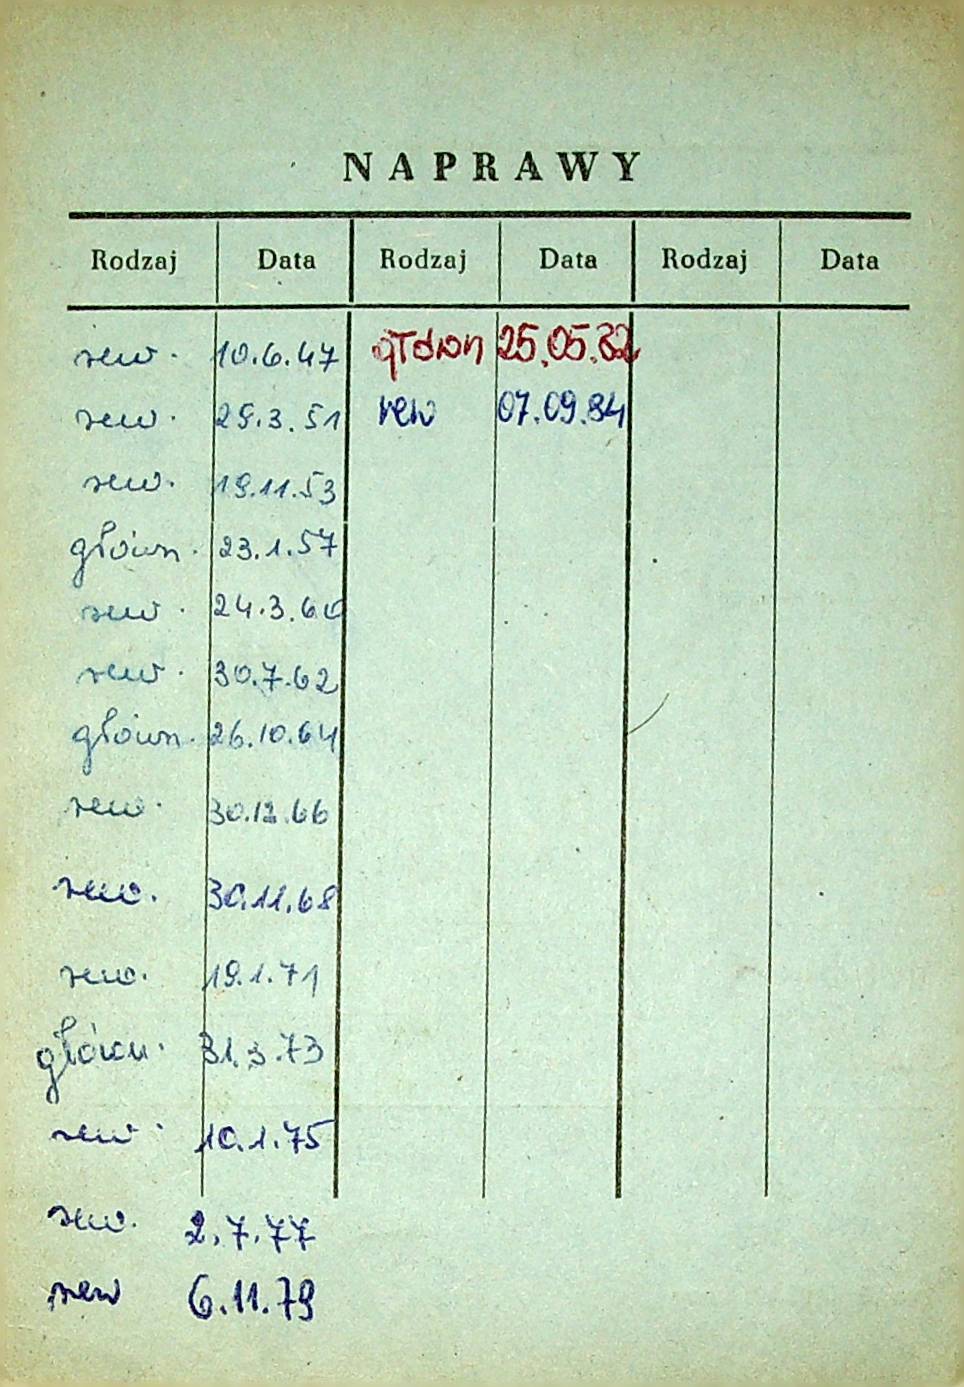 NAPRAWY
Rodzaj Data Rodzaj Data Rodzaj Data
rew. 10.6.47 główn 25.05.82
rew. 29.3.51 rew 07.09.84
rew. 19.11.53
główn. 23.1.57
rew. 24.3.60
rew. 30.7.62
główn. 26.10.64
rew. 30.12.66
rew. 30.11.68
rew. 19.1.71
główn. 31.3.73
rew. 10.1.75
rew. 2.7.77
rew 6.11.79